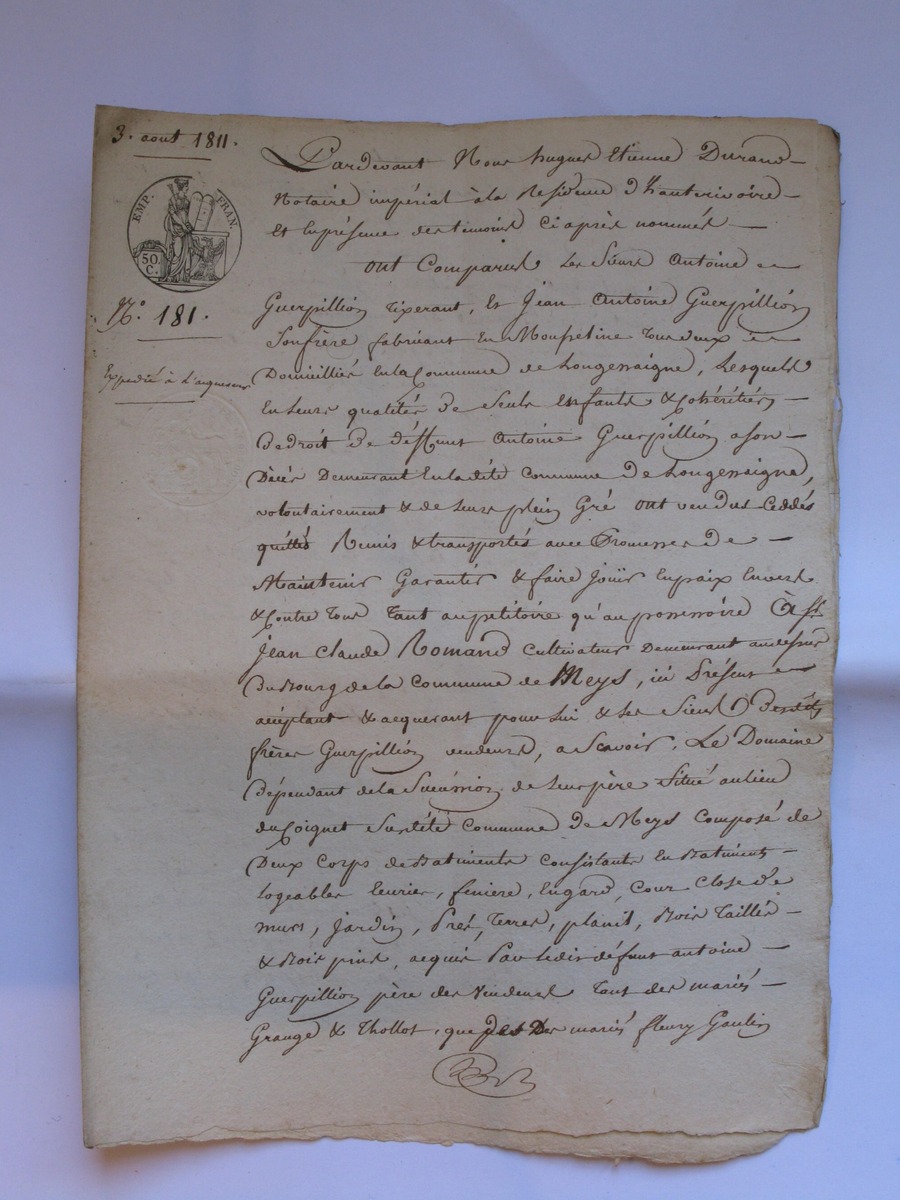 3. aout 1811.
EMP. FRAN.
50. C.
N.° 181.
Expédié à l'acquereur
Pardevant Nous hugues Etienne Durand
Notaire impérial à la Residence d'hauterivoire
Et En présence des temoins Ci après nommés
ont Comparus Les Sieurs Antoine
Guerpillion Tixerant, Et Jean Antoine Guerpillion
Son frère fabricant En Mousseline Tous deux
Domiciliés En la Commune de Longessaigne, Lesquels
En leurs qualités de Seuls Enfants & Cohéritiers
de droit de déffunt Antoine Guerpillion a son
Décès Demeurant En la dite Commune de Longessaigne,
volontairement & de leurs plein Gré ont vendus Ceddés
quittés Remis & transportés avec Promesses de
Maintenir Garantir & faire Joüir En paix Envers
& Contre Tous Tant au petitoire qu'au possessoire à Sr
Jean Claude Romand Cultivateur Demeurant au dessus
du Bourg de la Commune de Meys, ici Présent
acceptant & acquerant pour Lui & Les Siens Desdits
frères Guerpillion vendeurs, a Scavoir, Le Domaine
dépendant de la Succession de leur père Situé au lieu
du Coignet Sur dite Commune de Meys Composé de
Deux Corps de Batiments Consistants En Batiments
logeables Ecurier, feniere, Engard, Cour Close de
murs, Jardin, Prés, Terres, planit, Bois Taillis
& Bois pins, acquis Par Ledit défunt antoine
Guerpillion père des Vendeurs Tant des mariés
Grange & Thollot, que des mariés fleury Goulin